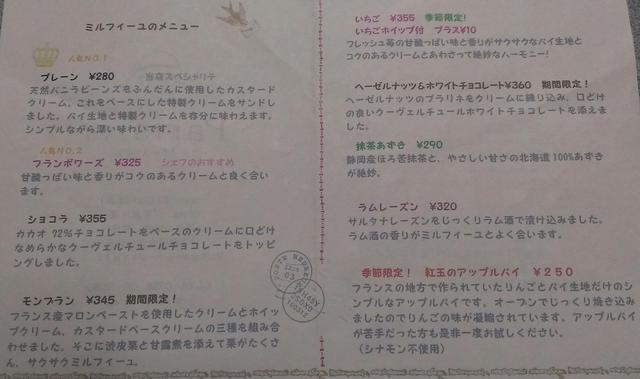 ミルフィーユのメニュー
人気NO.1
プレーン ¥280 当店スペシャリテ
天然バニラビーンズをふんだんに使用したカスタード
クリーム。これをベースにした特製クリームをサンドし
ました。パイ生地と特製クリームを存分に味わえます。
シンプルながら深い味わいです。
人気NO.2
フランボワーズ ¥325 シェフのおすすめ
甘酸っぱい味と香りがコクのあるクリームと良く合い
ます。
ショコラ ¥355
カカオ 72%チョコレートをベースのクリームに口どけ
なめらかなクーヴェルチュールチョコレートをトッピ
ングしました。
モンブラン ¥345 期間限定!
フランス産マロンペーストを使用したクリームとホイッ
プクリーム、カスタードベースクリームの三種を組み合
わせました。そこに渋皮栗と甘露煮を添えて栗がたくさ
ん、サクサクミルフィーユ。
いちご ¥355 季節限定!
いちごホイップ付 プラス¥10
フレッシュ苺の甘酸っぱい味と香りがサクサクなパイ生地と
コクのあるクリームとあわさって絶妙なハーモニー!
ヘーゼルナッツ&ホワイトチョコレート¥360 期間限定!
ヘーゼルナッツのプラリネをクリームに練り込み、口どけ
の良いクーヴェルチュールホワイトチョコレートを添えま
した。
抹茶あずき ¥290
静岡産ほろ苦抹茶と、やさしい甘さの北海道100%あずき
が絶妙。
ラムレーズン ¥320
サルタナレーズンをじっくりラム酒で漬け込みました。
ラム酒の香りがミルフィーユとよく合います。
季節限定! 紅玉のアップルパイ ¥250
フランスの地方で作られていたりんごとパイ生地だけのシ
ンプルなアップルパイです。オーブンでじっくり焼き込み
ましたのでりんごの味が凝縮されています。アップルパイ
が苦手だった方も是非一度お試しください。
(シナモン不使用)